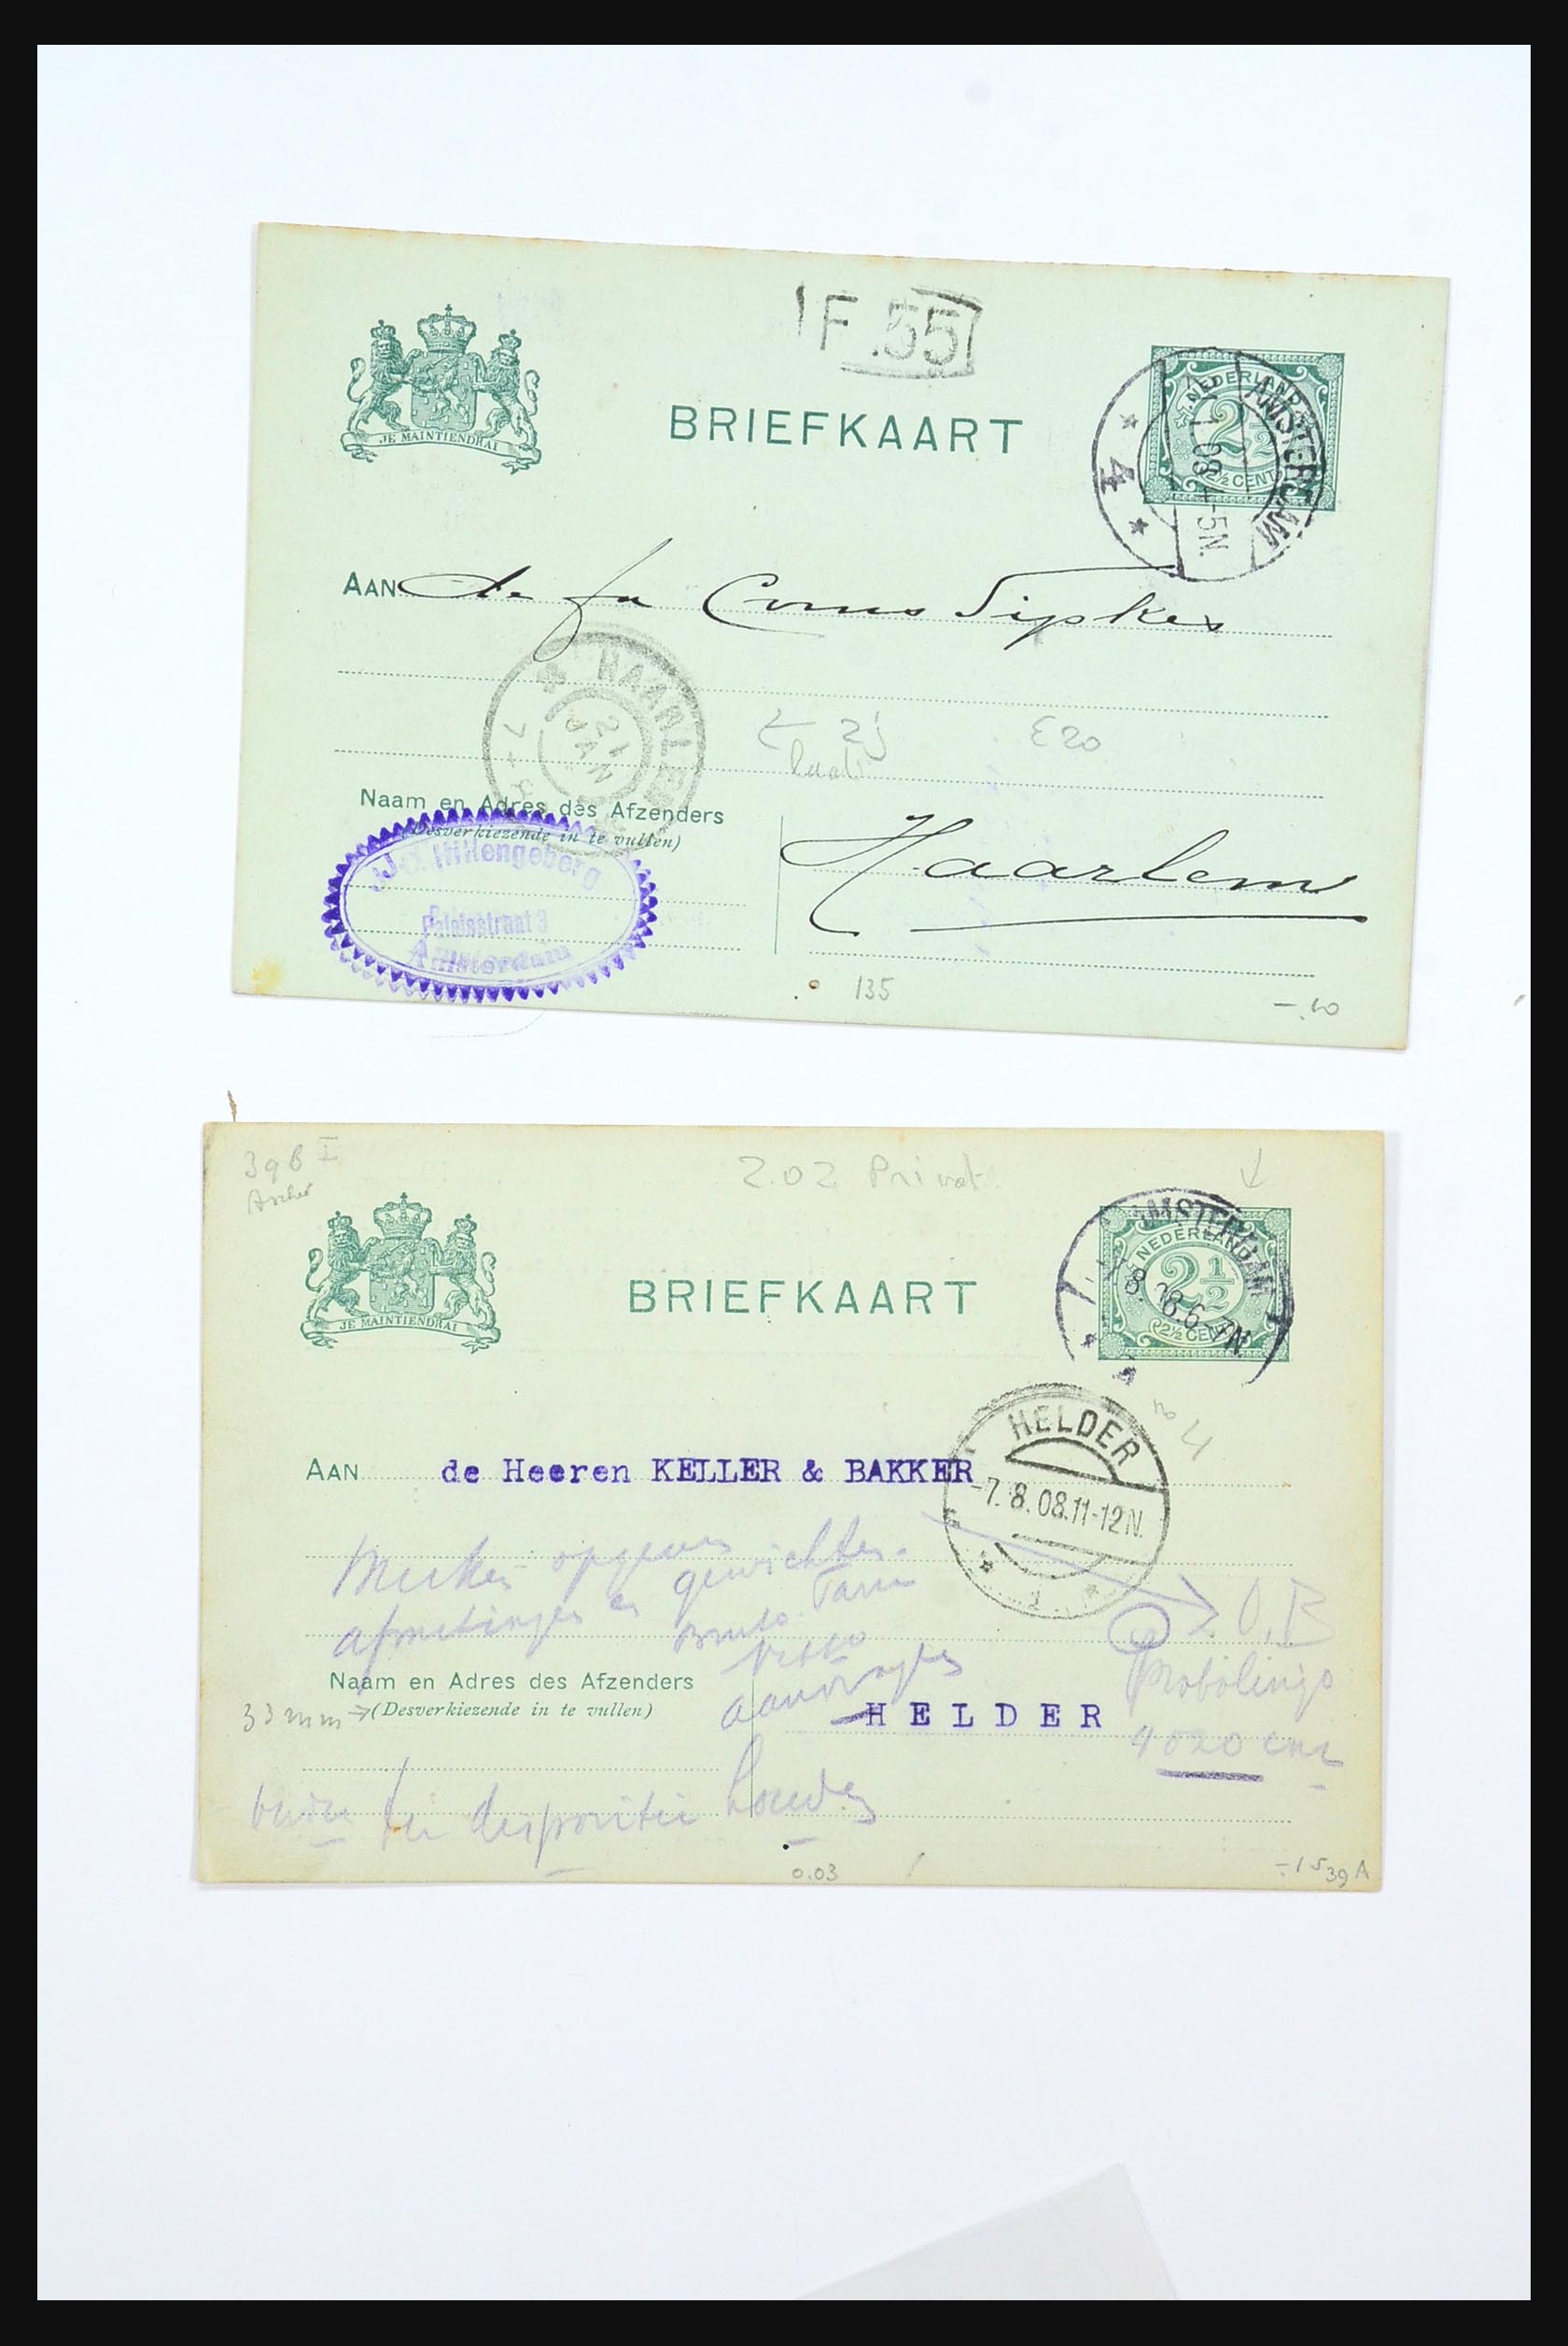 F.55
JE MAINTIENDRAI
BRIEFKAART
NEDERLAND
2½
2½ CENT
AMSTERDAM
1.08.4-5N.
4
AAN de fa Crans Sipkes
HAARLEM
21 JAN
E20
Naam en Adres des Afzenders
(Desverkiezende in te vullen)
Paleisstraat 3
Amsterdam
Haarlem
135
-.60
39 B I
Ascher
Z.O.Z Privat
JE MAINTIENDRAI
BRIEFKAART
AMSTERDAM
NEDERLAND
2½
2½ CENT
8.08.6-7N.
HELDER
-7.8.08.11-12N.
1
AAN de Heeren KELLER & BAKKER
Merken opgeven gewichten
afmetingen en Bruto Tarra
Netto
aanvragen
Naam en Adres des Afzenders
33 mm → (Desverkiezende in te vullen)
HELDER
O.B
Probolingo
ter dispositie houden
0.03
39 A